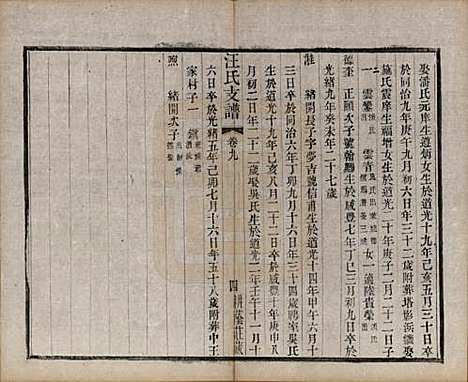 娶潘氏元庠生道炳女生於道光十九年己亥五月三十日卒
於同治九年庚午九月初六日年三十二歲附葬塔影浜繼娶
施氏震庠生福增女生於道光二十年庚子二月二十二日子
二 雲鑾 雲青 女一適陸貴榮
德奎 正頤次子號翰鵬生於咸豐七年丁巳三月初五日卒於
光緒九年癸未年二十七歲
註 緒開長子字夢吉號信甫生於道光十四年甲午六月十
三日卒於同治六年丁卯九月十六日年三十四歲聘室吳氏
生於道光十九年己亥八月二十二日卒於咸豐十年庚申
月初二日年二十二歲娶吳氏生於道光二年壬午十一月
六日卒於光緒五年己卯七月十六日年五十八歲附葬中王
家村子一
照 緒開次子
汪氏支譜
卷九
四
耕蔭莊藏